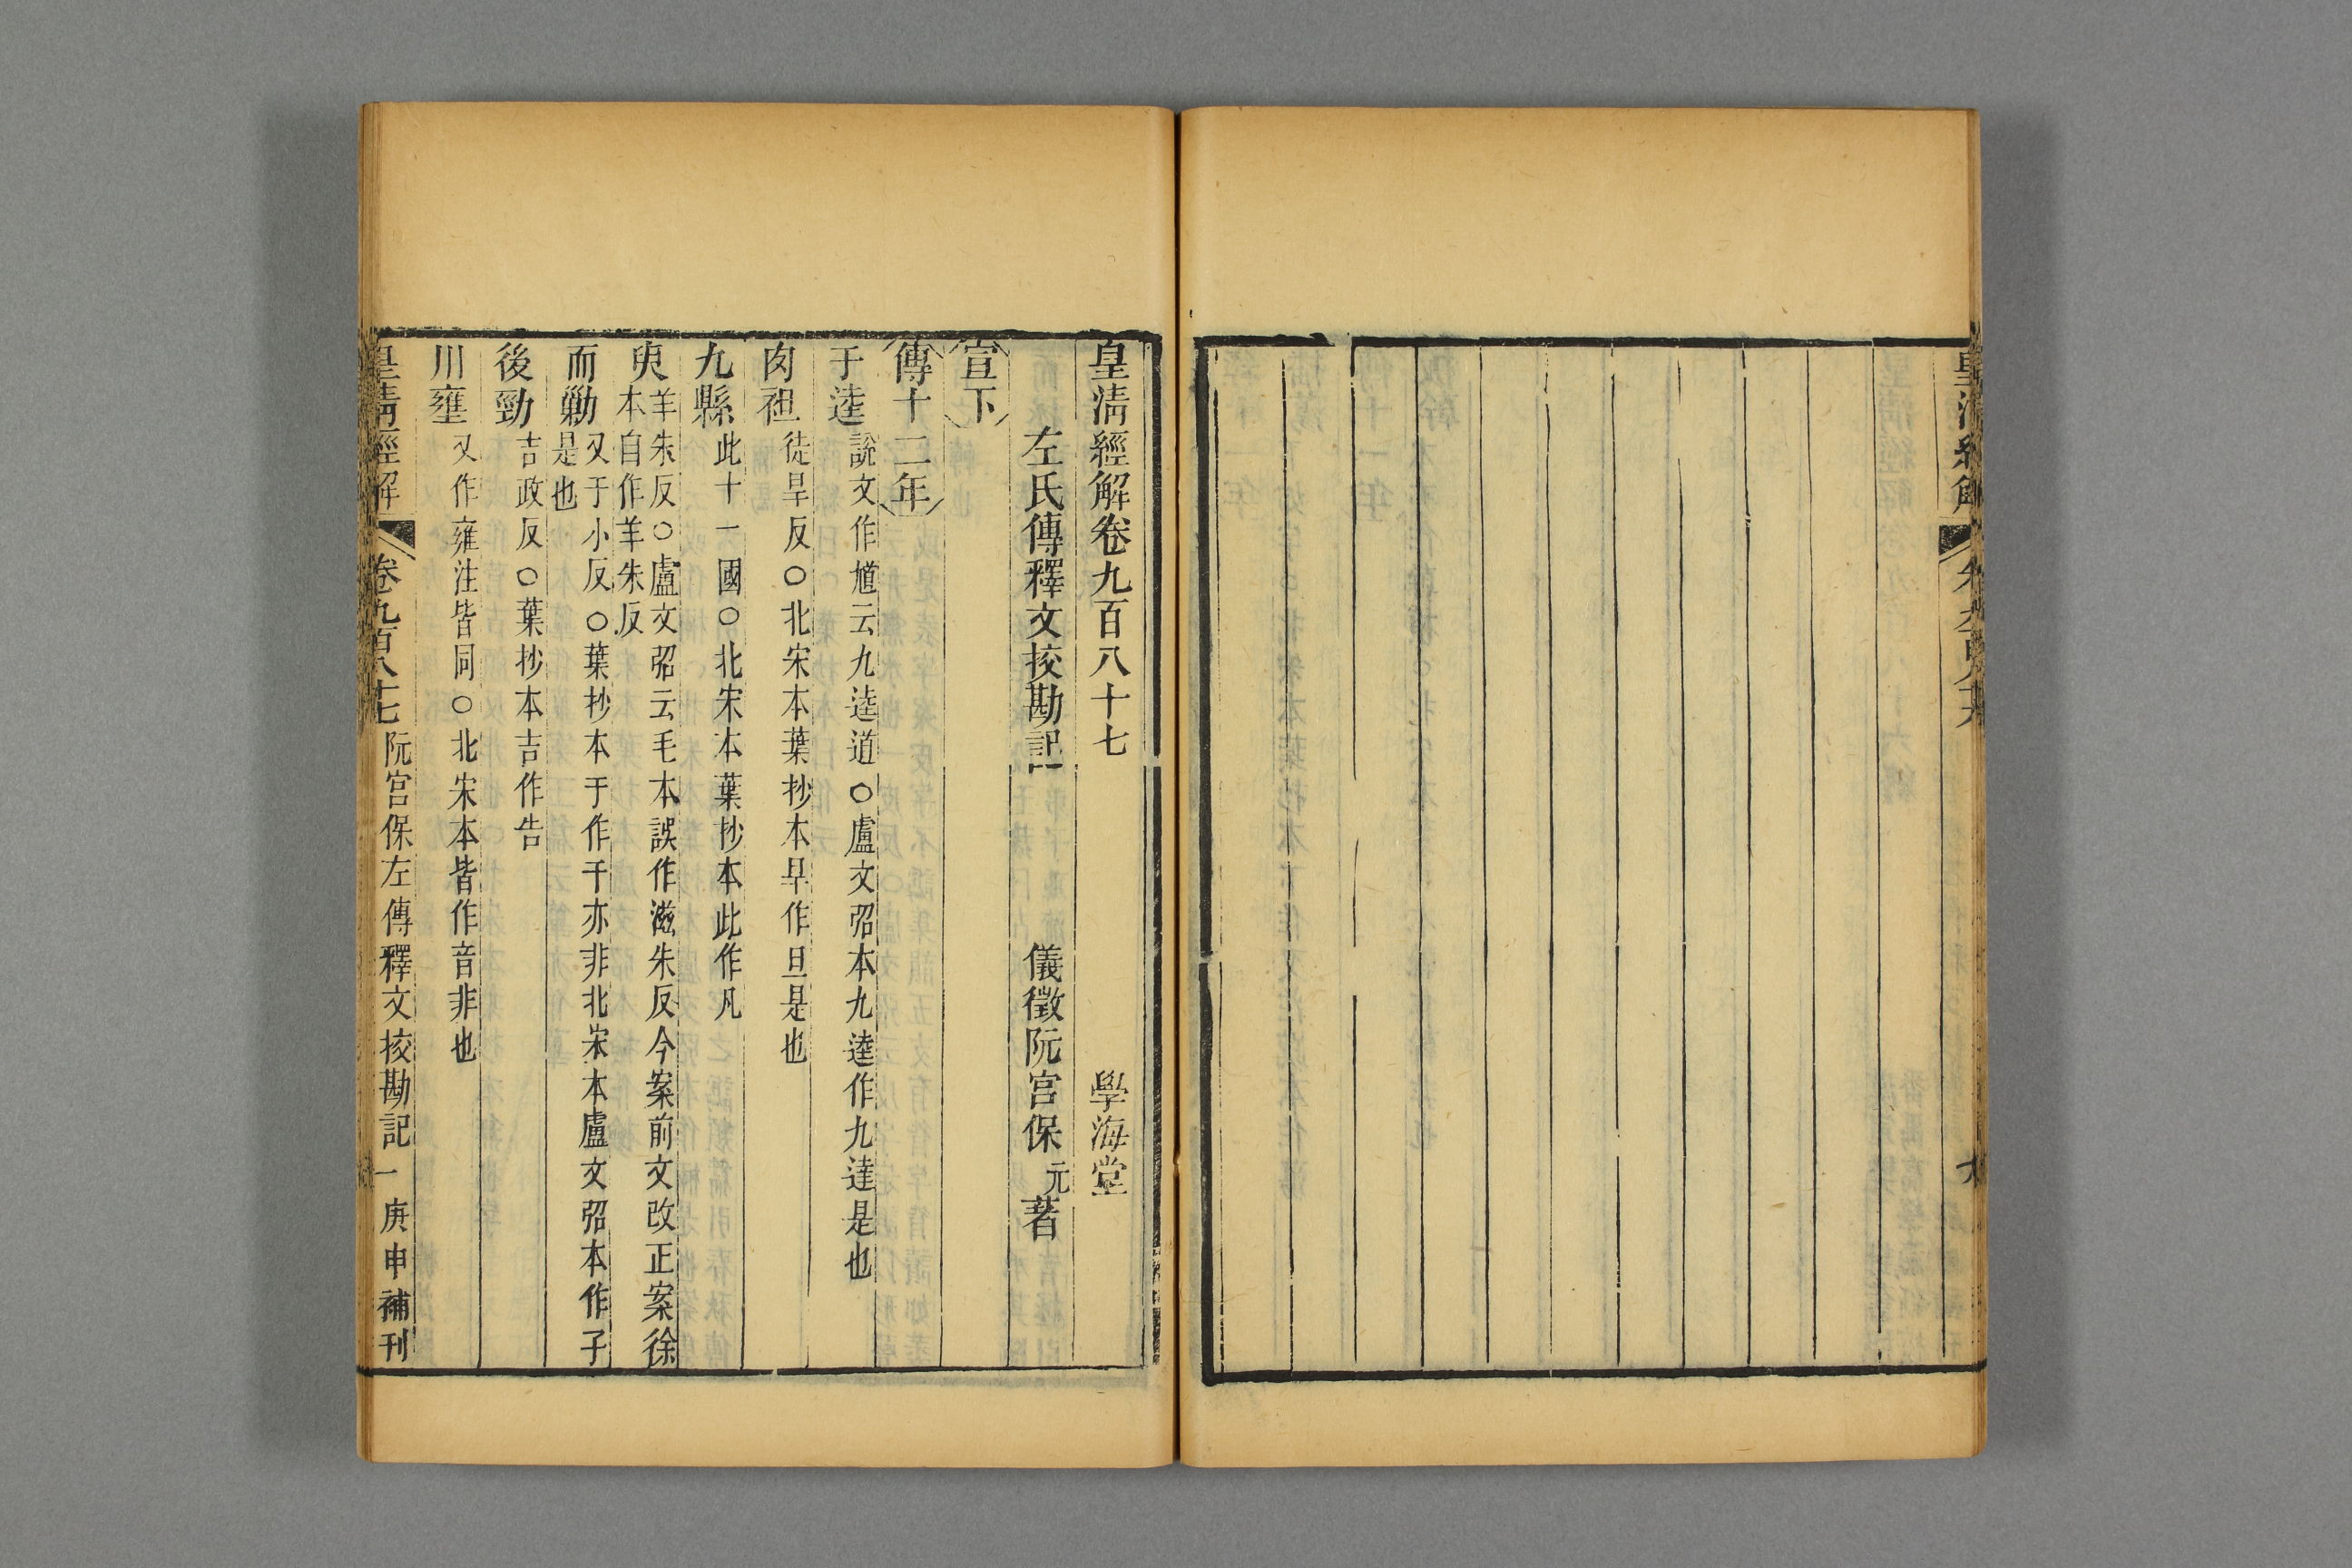 皇清經解
皇清經解卷九百八十七
學海堂
左氏傳釋文挍勘記
儀徵阮宮保元著
宣下
傳十二年
于逵 說文作馗云九逵道○盧文弨本九逵作九達是也
肉袒 徒旱反○北宋本葉抄本旱作旦是也
九縣 此十一國○北宋本葉抄本此作凡
臾 羊朱反○盧文弨云毛本誤作滋朱反今案前文改正案徐
本自作羊朱反
而勦 又于小反○葉抄本于作千亦非北宋本盧文弨本作子
是也
後勁 吉政反○葉抄本吉作告
川壅 又作雍注皆同○北宋本皆作音非也
皇清經解 卷九百八十七 阮宮保左傳釋文挍勘記 一 庚申補刊